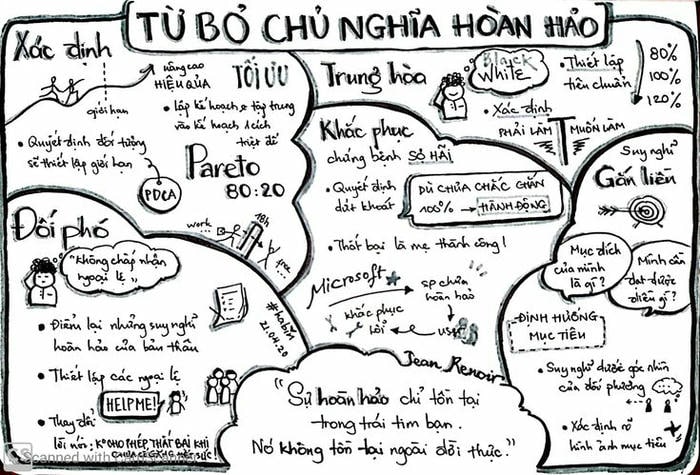 TỪ BỎ CHỦ NGHĨA HOÀN HẢO
Xác định
nâng cao
HIỆU QỦA
giới hạn
• Quyết định đối tượng
sẽ thiết lập giới hạn
PDCA
TỐI ƯU
• lập kế hoạch & tập trung
vào kế hoạch 1 cách
triệt để
Pareto
80:20
work
18h
free
Trung hòa
Black
White
• Thiết lập
tiêu chuẩn
80%
100%
120%
• Xác định
PHẢI LÀM
MUỐN LÀM
Khắc phục
chứng bệnh SỢ HÃI
• Quyết định
dứt khoát
DÙ CHƯA CHẮC CHẮN
100% → HÀNH ĐỘNG
• Thất bại là mẹ thành công!
Microsoft
sp chưa
hoàn hảo
user
khắc phục
lỗi
Suy nghĩ
Gắn liền
Mục đích
của mình
là gì?
Mình cần
đạt được
điều gì?
ĐỊNH HƯỚNG
MỤC TIÊU
• Suy nghĩ dưới góc nhìn
của đối phương
• Xác định rõ
hình ảnh mục tiêu
Đối phó
"Không chấp nhận
ngoại lệ"
• Điểm lại những suy nghĩ
hoàn hảo của bản thân
• Thiết lập các ngoại lệ
HELP ME!
• Thay đổi
lời nói: K° CHO PHÉP THẤT BẠI KHI
CHƯA CỐ GẮNG HẾT SỨC!
#habin
21.04.20
Jean Renoir
"Sự hoàn hảo chỉ tồn tại
trong trái tim bạn.
Nó không tồn tại ngoài đời thực."
CS Scanned with CamScanner